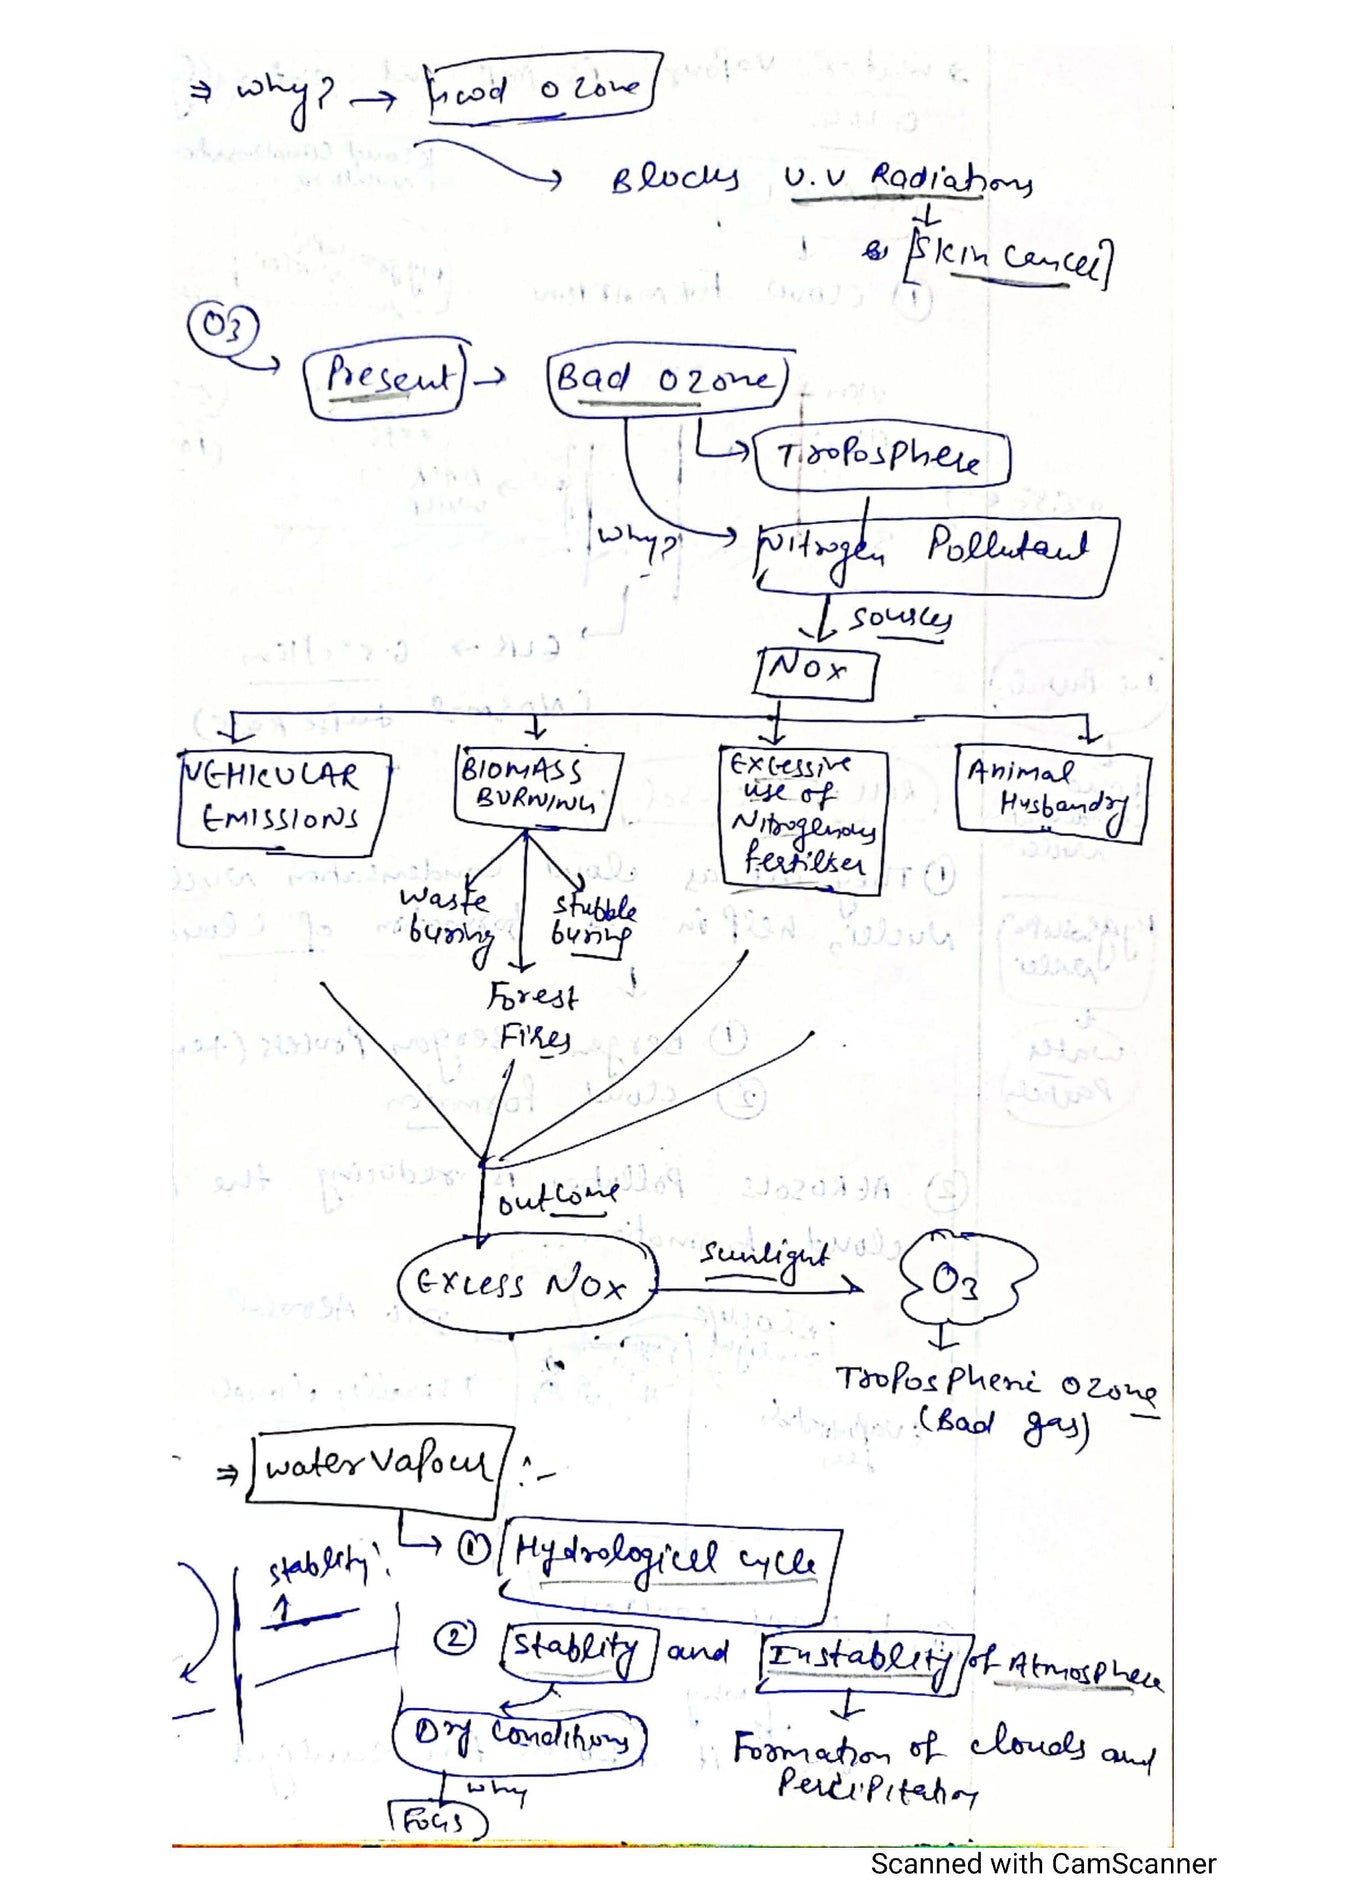 ⇒ Why? → Good Ozone
→ Blocks U.V Radiations
↓
[Skin Cancer]
O3
→ Present → Bad Ozone
→ Troposphere
Why? → Nitrogen Pollutant
↓ Sources
NOx
VEHICULAR EMISSIONS
BIOMASS BURNING
Excessive use of Nitrogenous fertilser
Animal Husbandry
Waste buring
Stubble buring
Forest Fires
outcome
Excess NOx
Sunlight
O3
↓
Tropospheric Ozone
(Bad gas)
⇒ Water Vapour :-
→ ① Hydrological cycle
Stablity:
↑
② Stablity and Instablity of Atmosphere
Dry Conditions
↓
Formation of clouds and
Percipitation
why
FOGS
Scanned with CamScanner